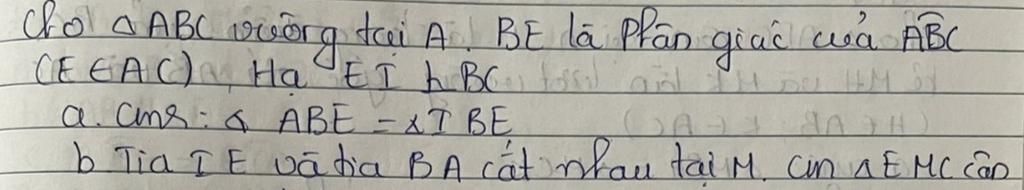 Cho △ABC vuông tại A. BE là Phân giác của ABC
(E ∈ AC), Hạ EI ⊥ BC
a. Cmr: △ ABE = △IBE
b Tia IE và tia BA cắt nhau tại M. Cm △EMC cân